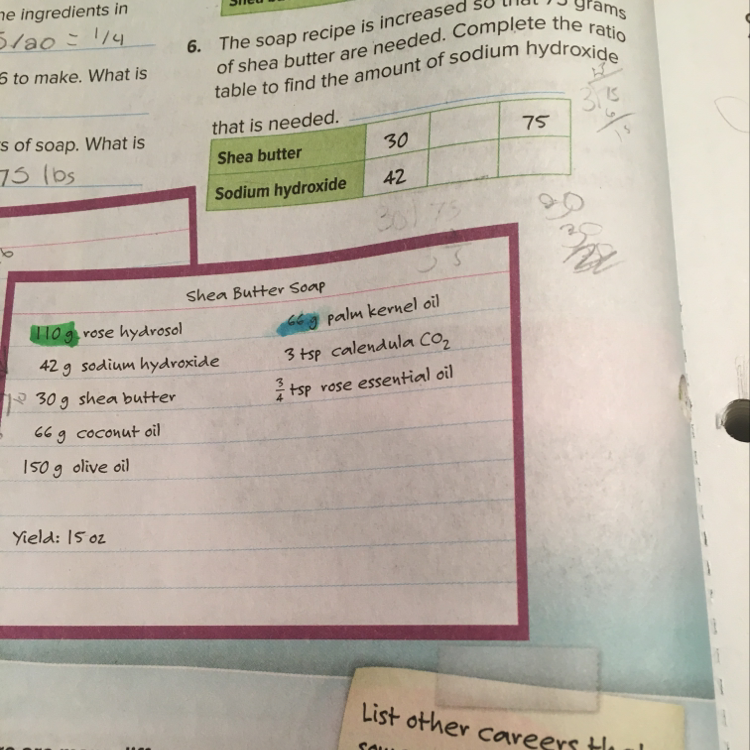 ne ingredients in
5/20 = 1/4
6 to make. What is
s of soap. What is
75 lbs
6. The soap recipe is increased so that 75 grams
of shea butter are needed. Complete the ratio
table to find the amount of sodium hydroxide
that is needed.
Shea butter 30 75
Sodium hydroxide 42
30 75
Shea Butter Soap
110 g rose hydrosol
42 g sodium hydroxide
30 g shea butter
66 g coconut oil
150 g olive oil
66 g palm kernel oil
3 tsp calendula CO₂
3/4 tsp rose essential oil
Yield: 15 oz
List other careers